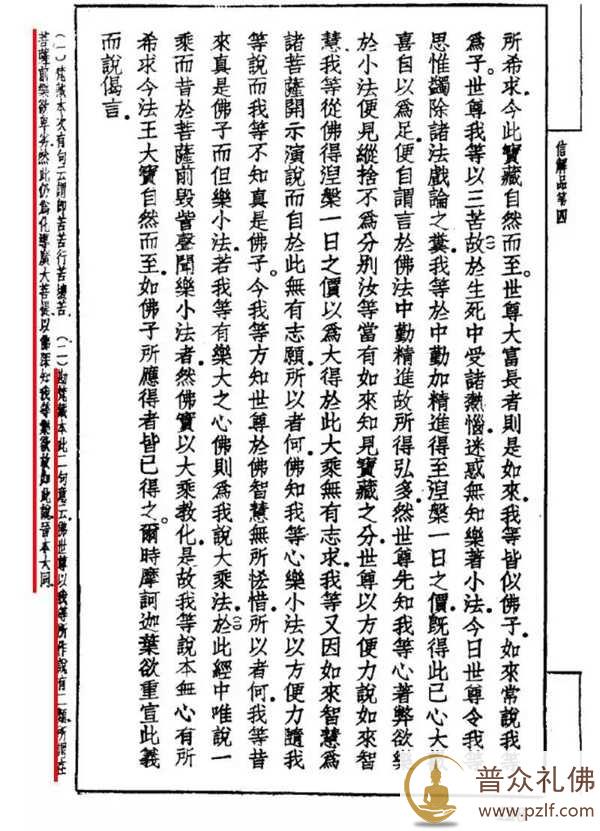 信解品第四
所希求今此寶藏自然而至。世尊大富長者則是如來。我等皆似佛子。如來常說我等
爲子。世尊我等以三苦(一)故於生死中受諸熱惱迷惑無知樂著小法今日世尊令我等
思惟蠲除諸法戲論之糞。我等於中勤加精進得至涅槃一日之價。旣得此已心大歡
喜自以爲足便自謂言於佛法中勤精進故所得弘多。然世尊先知我等心著弊欲樂
於小法便見縱捨不爲分別汝等當有如來知見寶藏之分。世尊以方便力說如來智
慧。我等從佛得涅槃一日之價以爲大得於此大乘無有志求。我等又因如來智慧爲
諸菩薩開示演說而自於此無有志願。所以者何。佛知我等心樂小法以方便力隨我
等說而我等不知真是佛子。今我等方知世尊於佛智慧無所恡惜。所以者何。我等昔
來真是佛子而但樂小法。若我等有樂大之心佛則爲我說大乘法。(二)於此經中唯說一
乘而昔於菩薩前毀訾聲聞樂小法者。然佛實以大乘教化。是故我等說本無心有所
希求今法王大寶自然而至。如佛子所應得者皆已得之。爾時摩訶迦葉欲重宣此義
而說偈言。
(一)梵藏本次有句云謂卽苦苦行苦壞苦 (二)勘梵藏本此二句意云佛世尊以我等所作說有二類所謂在
菩薩前樂欲卑劣然此仍爲化導廣大菩提以佛深知我等樂欲故如此說晉本大同
普众礼佛
www.pzlf.com